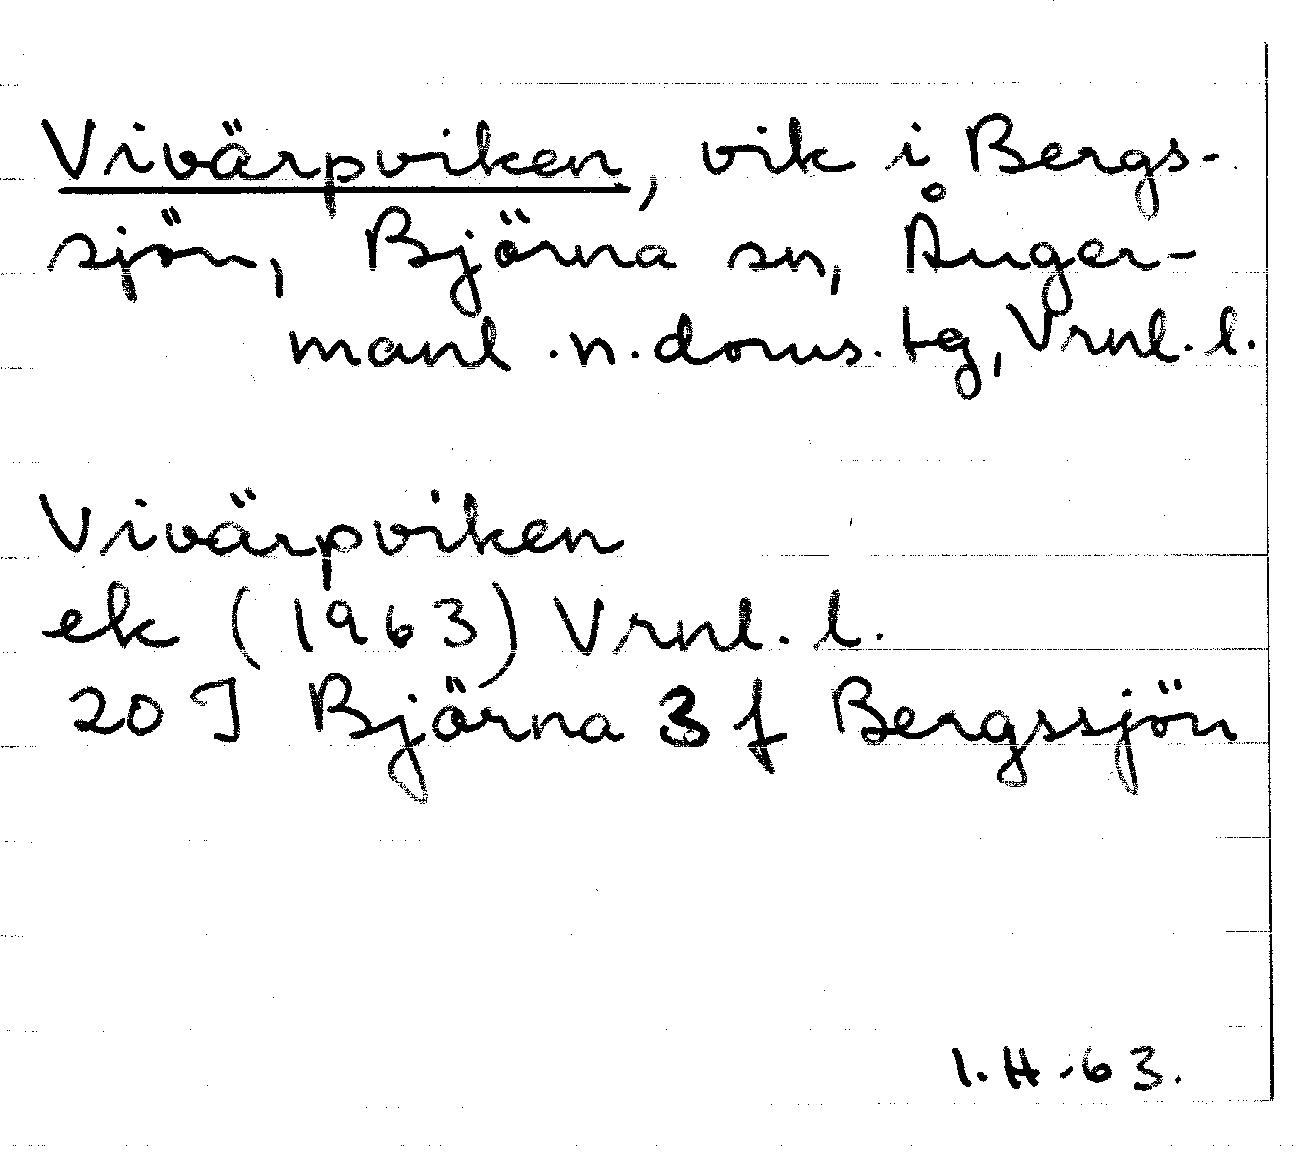 Vivärpviken, vik i Bergs-
sjön, Björna sn, Ånger-
manl. n. doms. tg, Vrnl. l.
Vivärpviken
ek (1963) Vrnl. l.
20 I Björna 3 f Bergssjön
I.H.-63.